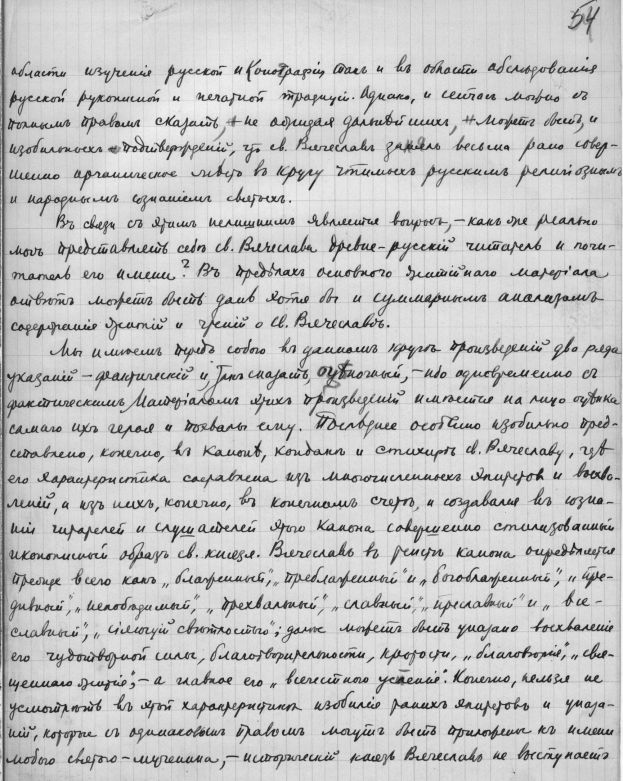 54
области изученія русской иконографіи такъ и въ области обслѣдованія
русской рукописной и печатной традиціи. Однако, и сейчасъ можно съ
полнымъ правомъ сказать, не ожидая дальнѣйшихъ, можетъ быть, и
изобильныхъ подтвержденій, что св. Вячеславъ занялъ весьма рано совер-
шенно органическое мѣсто въ кругу чтимыхъ русскимъ религіознымъ
и народнымъ сознаніемъ святыхъ.
Въ связи съ этимъ нелишнимъ является вопросъ, – какъ же реально
могъ представлять себѣ св. Вячеслава древне-русскій читатель и почи-
татель его имени? Въ предѣлахъ основного житійнаго матеріала
отвѣтъ можетъ быть данъ хотя бы и суммарнымъ анализомъ
содержанія житій и чтеній о св. Вячеславѣ.
Мы имѣемъ передъ собою въ данномъ кругѣ произведеній два ряда
указаній – фактическій и, такъ сказать, оцѣночный, – ибо одновременно съ
фактическимъ матеріаломъ этихъ произведеній имѣется на лицо оцѣнка
самаго ихъ героя и похвалы ему. Послѣднее особенно изобильно пред-
ставлено, конечно, въ канонѣ, кондакѣ и стихирѣ св. Вячеславу, гдѣ
его характеристика составлена изъ многочисленныхъ эпитетовъ и восхва-
леній, и изъ нихъ, конечно, въ конечномъ счетѣ, и создавался въ созна-
ніи читателей и слушателей этого канона совершенно стилизованный
иконописный образъ св. князя. Вячеславъ въ текстѣ канона опредѣляется
прежде всего какъ „блаженный", „преблаженный" и „богоблаженный", „пре-
дивный", „непобѣдимый", „прехвальный", „славный", „преславный" и „все-
славный", „сіяющій свѣтлостью"; далѣе можетъ быть указано восхваленіе
его чудотворной силы, благотворительности, кротости, „благовѣрія", „свя-
щеннаго житія", – а главное его „всечестного успенія". Конечно, нельзя не
усмотрѣть въ этой характеристикѣ изобилія такихъ эпитетовъ и указа-
ній, которые съ одинаковымъ правомъ могутъ быть приложены къ имени
любого святого-мученика, – историческій князь Вячеславъ не выступаетъ